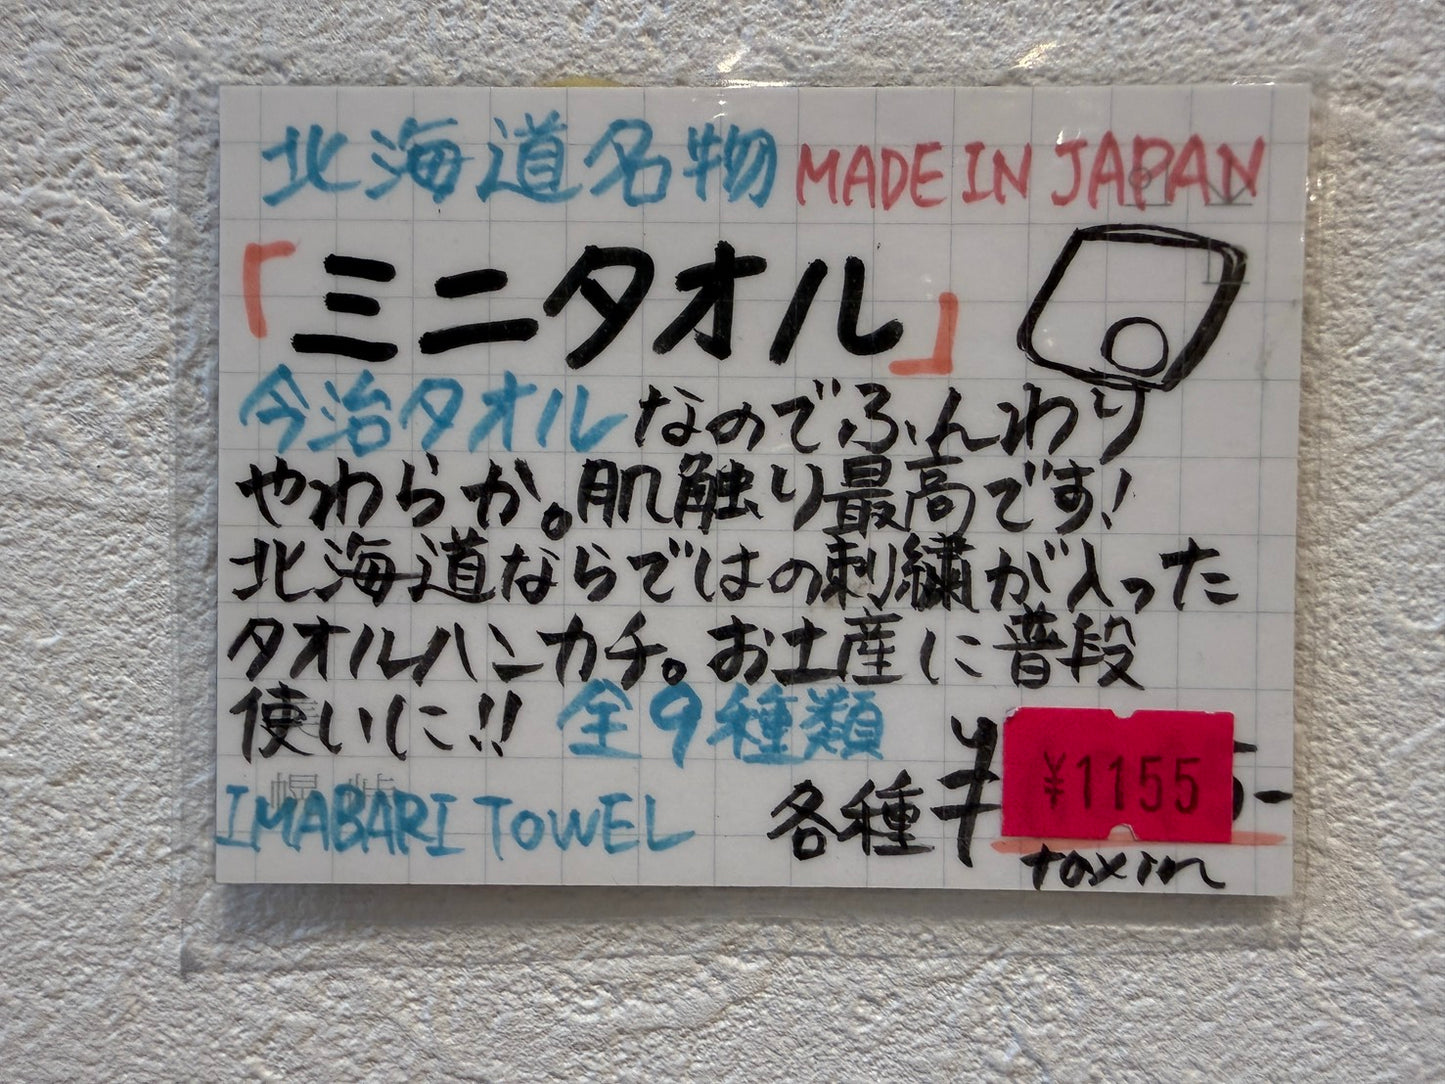 北海道名物 MADE IN JAPAN
「ミニタオル」
今治タオルなのでふんわり
やわらか。肌触り最高です!
北海道ならではの刺繍が入った
タオルハンカチ。お土産に普段
使いに!! 全9種類
IMABARI TOWEL 各種 ¥1155
tax in